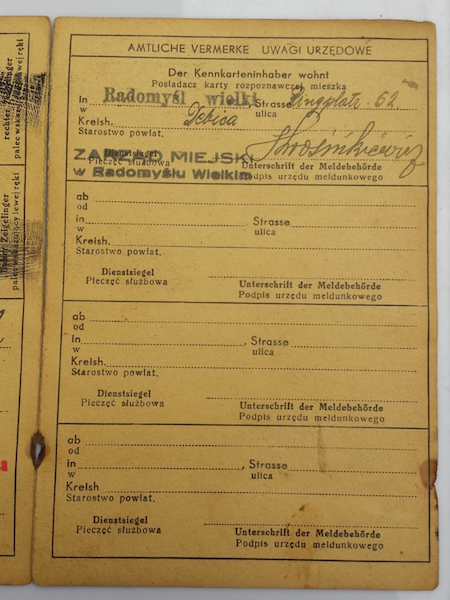 AMTLICHE VERMERKE UWAGI URZĘDOWE
Der Kennkarteninhaber wohnt
Posiadacz karty rozpoznawczej mieszka
in Radomyśl wielki Strasse Ringplatz 62
w ulica
Kreish. Debica
Starostwo powiat.
Dienstsiegel
Pieczęć służbowa
ZARZĄD MIEJSKI
w Radomyślu Wielkim
Unterschrift der Meldebehörde
Podpis urzędu meldunkowego
ab
od
in Strasse
w ulica
Kreish.
Starostwo powiat.
Dienstsiegel Unterschrift der Meldebehörde
Pieczęć służbowa Podpis urzędu meldunkowego
ab
od
in Strasse
w ulica
Kreish.
Starostwo powiat.
Dienstsiegel Unterschrift der Meldebehörde
Pieczęć służbowa Podpis urzędu meldunkowego
ab
od
in Strasse
w ulica
Kreish
Starostwo powiat.
Dienstsiegel Unterschrift der Meldebehörde
Pieczęć służbowa Podpis urzędu meldunkowego
rechter Zeigefinger
palec wskazujący prawej ręki
linker Zeigefinger
palec wskazujący lewej ręki